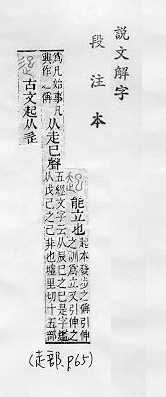 說文解字
段注本
能立也
起本發步之偁引伸
之訓爲立又引伸之
爲凡始事凡
興作之偁
从走巳聲
五經文字云从辰巳之巳是字鑑
从戊己之己非也墟里切十五部
古文起从辵
(走部.p65)